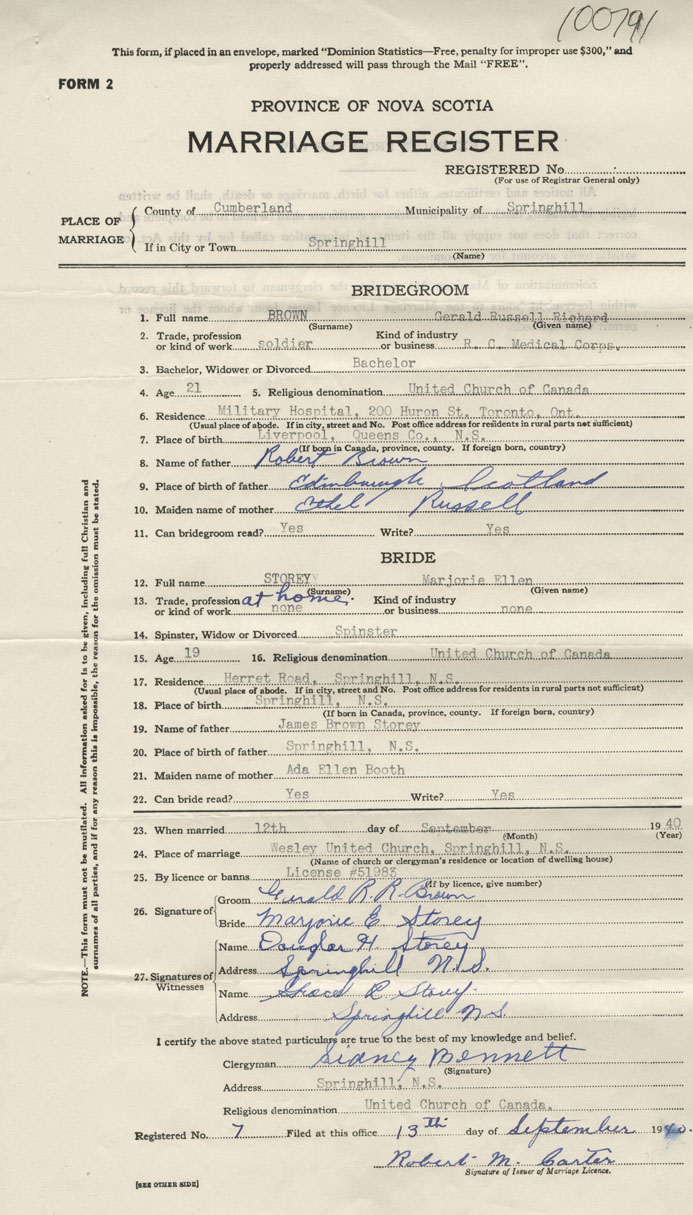 100791
This form, if placed in an envelope, marked "Dominion Statistics—Free, penalty for improper use $300," and
properly addressed will pass through the Mail "FREE".
FORM 2
PROVINCE OF NOVA SCOTIA
MARRIAGE REGISTER
REGISTERED No.
(For use of Registrar General only)
PLACE OF MARRIAGE
County of Cumberland Municipality of Springhill
If in City or Town Springhill
(Name)
BRIDEGROOM
1. Full name BROWN Gerald Russell Richard
(Surname) (Given name)
2. Trade, profession or kind of work soldier Kind of industry or business R. C. Medical Corps.
3. Bachelor, Widower or Divorced Bachelor
4. Age 21 5. Religious denomination United Church of Canada
6. Residence Military Hospital, 200 Huron St. Toronto, Ont.
(Usual place of abode. If in city, street and No. Post office address for residents in rural parts not sufficient)
7. Place of birth Liverpool, Queens Co., N.S.
(If born in Canada, province, county. If foreign born, country)
8. Name of father Robert Brown
9. Place of birth of father Edinburough Scotland
10. Maiden name of mother Ethel Russell
11. Can bridegroom read? Yes Write? Yes
BRIDE
12. Full name STOREY Marjorie Ellen
(Surname) (Given name)
13. Trade, profession or kind of work at home. none Kind of industry or business none
14. Spinster, Widow or Divorced Spinster
15. Age 19 16. Religious denomination United Church of Canada
17. Residence Herret Road, Springhill, N.S.
(Usual place of abode. If in city, street and No. Post office address for residents in rural parts not sufficient)
18. Place of birth Springhill, N.S.
(If born in Canada, province, county. If foreign born, country)
19. Name of father James Brown Storey
20. Place of birth of father Springhill, N.S.
21. Maiden name of mother Ada Ellen Booth
22. Can bride read? Yes Write? Yes
23. When married 12th day of September 1940
(Month) (Year)
24. Place of marriage Wesley United Church, Springhill, N.S.
(Name of church or clergyman's residence or location of dwelling house)
25. By licence or banns License #51983
(If by licence, give number)
26. Signature of
Groom Gerald R. R. Brown
Bride Marjorie E. Storey
27. Signatures of Witnesses
Name Douglas H. Storey
Address Springhill N.S.
Name R Storey.
Address Springhill N.S.
I certify the above stated particulars are true to the best of my knowledge and belief.
Clergyman Sidney Bennett
(Signature)
Address Springhill, N.S.
Religious denomination United Church of Canada.
Registered No. 7 Filed at this office 13th day of September 1940.
Robert M. Carter
Signature of Issuer of Marriage Licence.
[SEE OTHER SIDE]
NOTE.—This form must not be mutilated. All information asked for is to be given, including full Christian and
surnames of all parties, and if for any reason this is impossible, the reason for the omission must be stated.